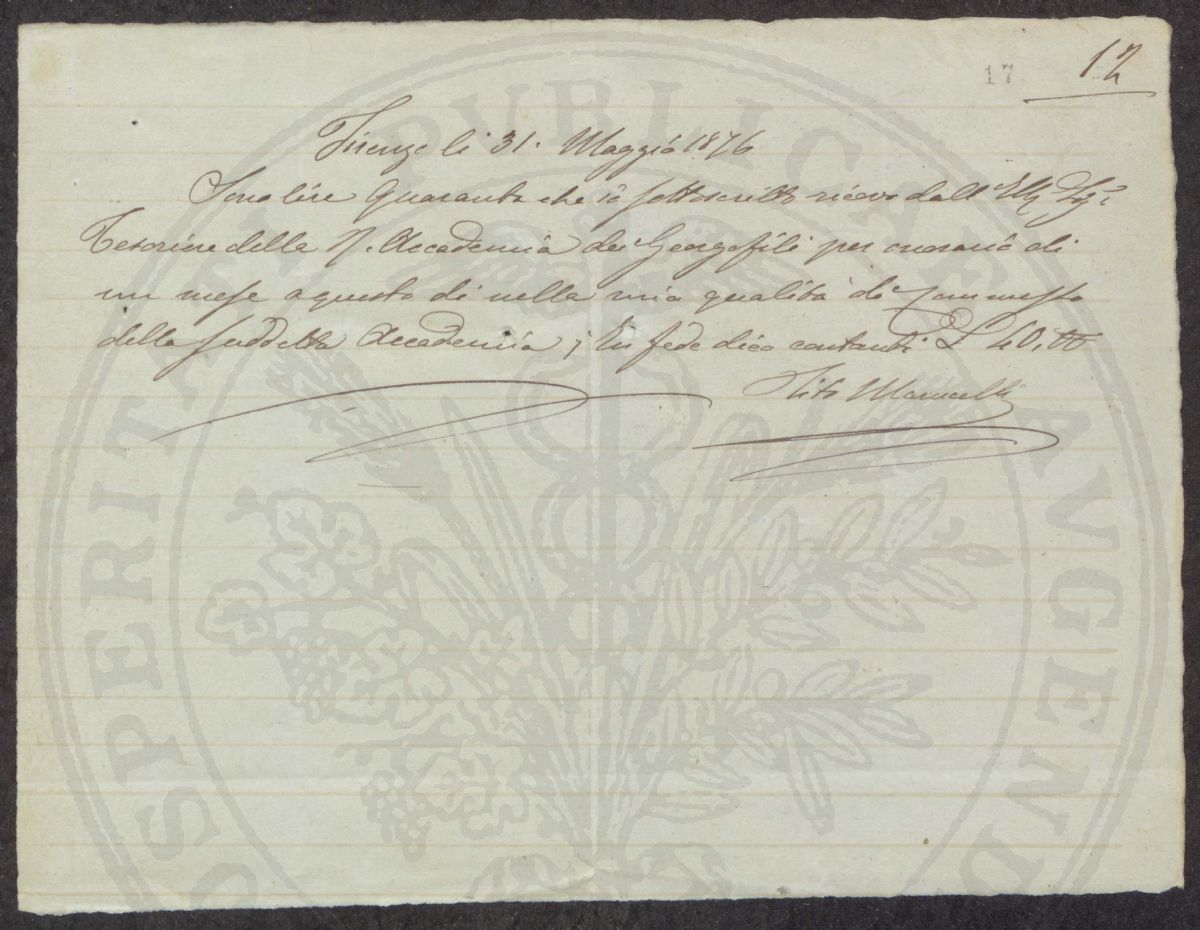 17 12
Firenze li 31. Maggio 1876
Sono lire Quaranta che io sottoscritto ricevo dall' Ill. Sig.
Tesoriere della R. Accademia dei Georgofili per onorario di
un mese a questo dì nella mia qualità di Commesso
della suddetta Accademia; In fede dico contanti £ 40,00
Tito Marucelli
PROSPERITATI PVBLICAE AVGENDAE